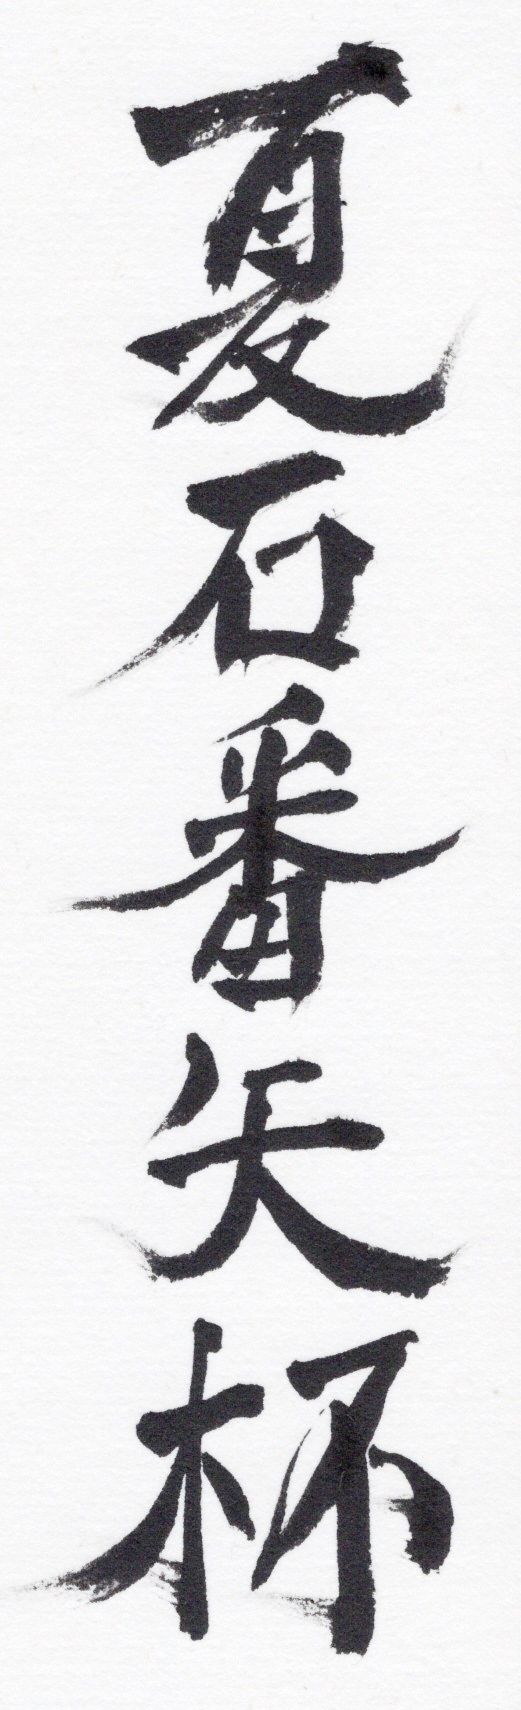 夏石番矢杯